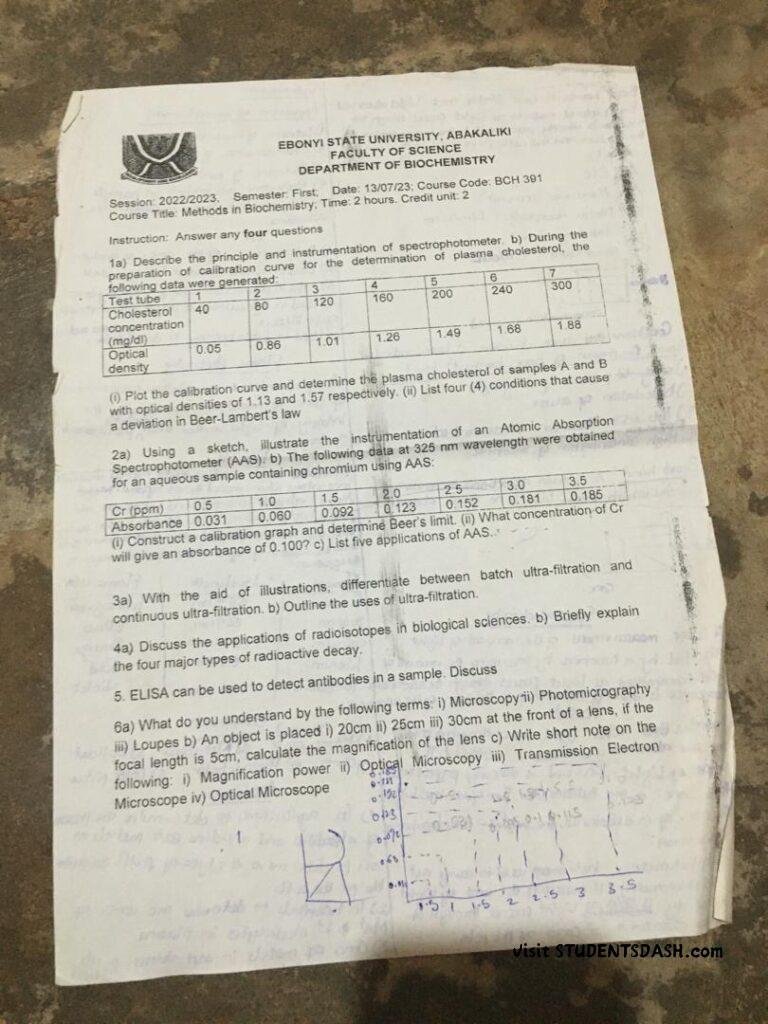 EBONYI STATE UNIVERSITY, ABAKALIKI
FACULTY OF SCIENCE
DEPARTMENT OF BIOCHEMISTRY
Session: 2022/2023, Semester: First; Date: 13/07/23; Course Code: BCH 391
Course Title: Methods in Biochemistry; Time: 2 hours. Credit unit: 2
Instruction: Answer any four questions
1a) Describe the principle and instrumentation of spectrophotometer. b) During the
preparation of calibration curve for the determination of plasma cholesterol, the
following data were generated:
Test tube 1 2 3 4 5 6 7
Cholesterol concentration (mg/dl) 40 80 120 160 200 240 300
Optical density 0.05 0.86 1.01 1.26 1.49 1.68 1.88
(i) Plot the calibration curve and determine the plasma cholesterol of samples A and B
with optical densities of 1.13 and 1.57 respectively. (ii) List four (4) conditions that cause
a deviation in Beer-Lambert's law
2a) Using a sketch, illustrate the instrumentation of an Atomic Absorption
Spectrophotometer (AAS). b) The following data at 325 nm wavelength were obtained
for an aqueous sample containing chromium using AAS:
Cr (ppm) 0.5 1.0 1.5 2.0 2.5 3.0 3.5
Absorbance 0.031 0.060 0.092 0.123 0.152 0.181 0.185
(i) Construct a calibration graph and determine Beer's limit. (ii) What concentration of Cr
will give an absorbance of 0.100? c) List five applications of AAS.
3a) With the aid of illustrations, differentiate between batch ultra-filtration and
continuous ultra-filtration. b) Outline the uses of ultra-filtration.
4a) Discuss the applications of radioisotopes in biological sciences. b) Briefly explain
the four major types of radioactive decay.
5. ELISA can be used to detect antibodies in a sample. Discuss
6a) What do you understand by the following terms: i) Microscopy ii) Photomicrography
iii) Loupes b) An object is placed i) 20cm ii) 25cm iii) 30cm at the front of a lens, if the
focal length is 5cm, calculate the magnification of the lens c) Write short note on the
following: i) Magnification power ii) Optical Microscopy iii) Transmission Electron
Microscope iv) Optical Microscope
1 1.5 2 2.5 3 3.5
visit STUDENTSDASH.com